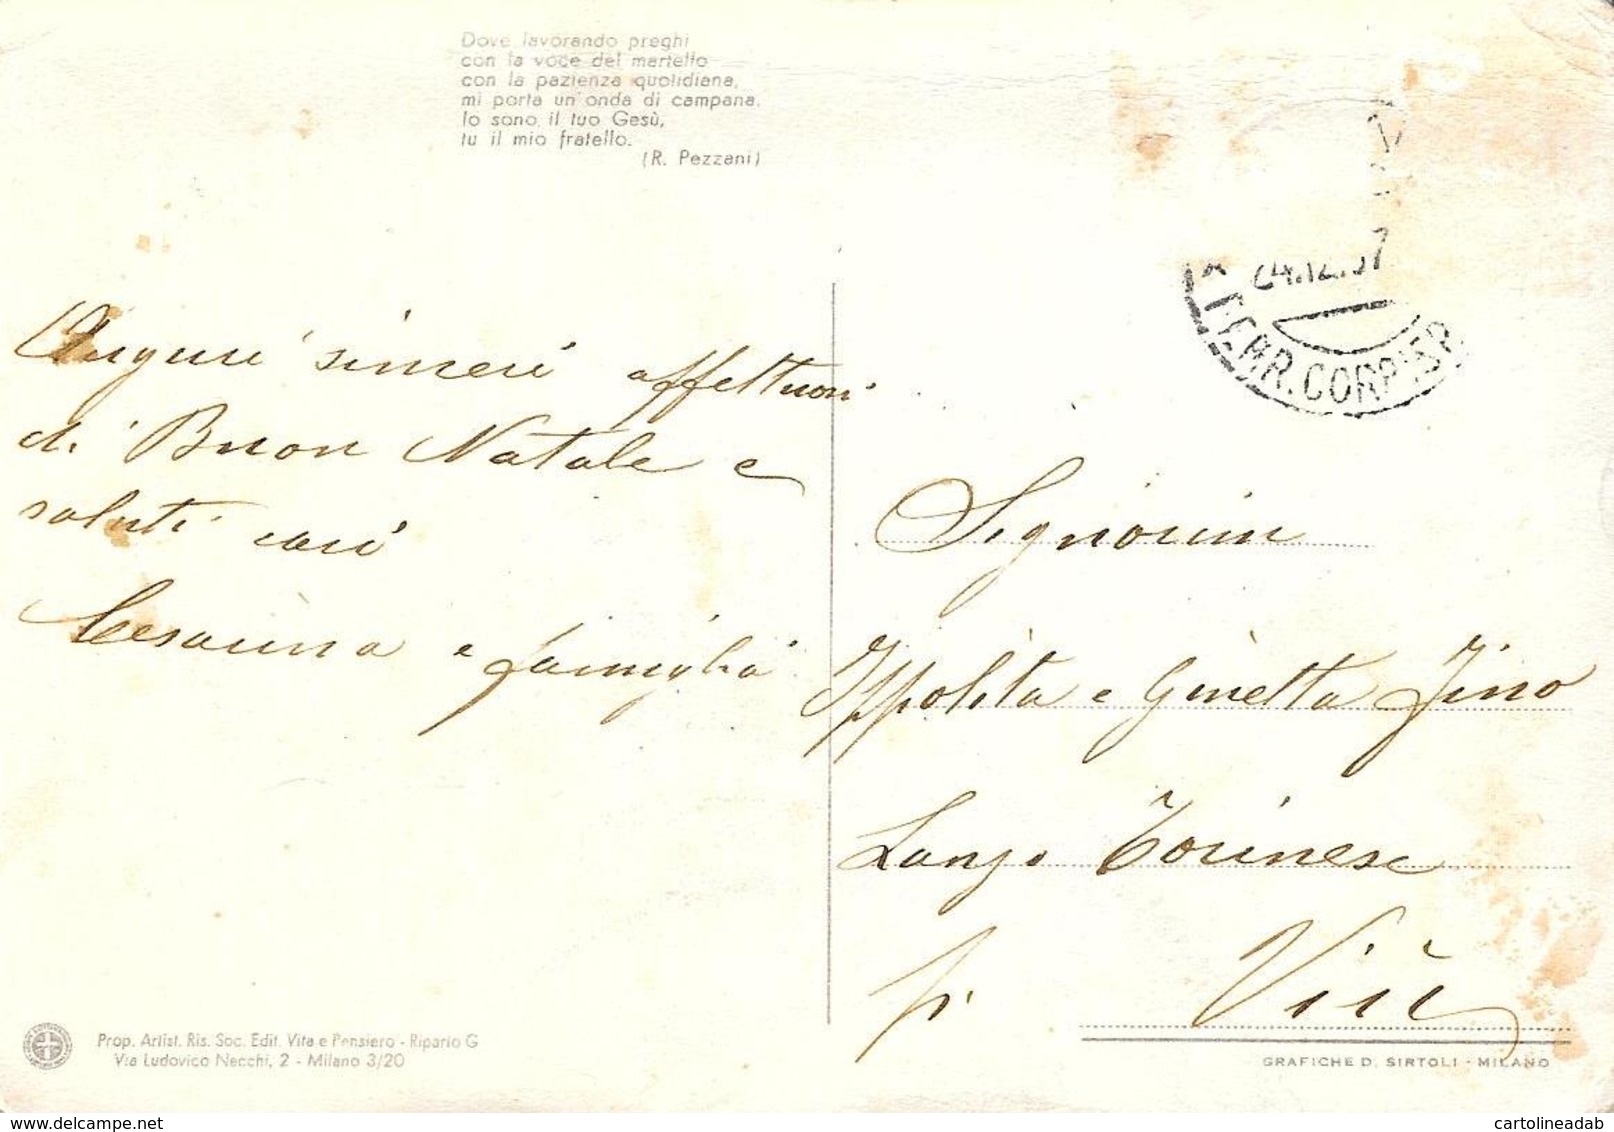 Dove lavorando preghi
con la voce del martello
con la pazienza quotidiana,
mi porta un'onda di campana.
Io sono il tuo Gesù,
tu il mio fratello.
(R. Pezzani)
24.12.57
FERR. CORRISP
Auguri sinceri affettuosi
di Buon Natale e
saluti cari
Cesarina e famiglia
Signorine
Ippolita e Ginetta Fino
Lanzo Torinese
p. Viù
Prop. Artist. Ris. Soc. Edit. Vita e Pensiero - Riparto G
Via Ludovico Necchi, 2 - Milano 3/20
GRAFICHE D. SIRTOLI - MILANO
www.delcampe.net
cartolineadab